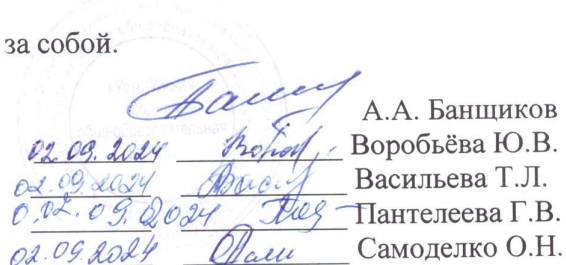 за собой.
А.А. Банщиков
02.09.2024 Воробьёва Ю.В.
02.09.2024 Васильева Т.Л.
0.02.09.2024 Пантелеева Г.В.
02.09.2024 Самоделко О.Н.